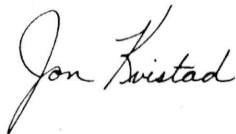 Jon Kvistad